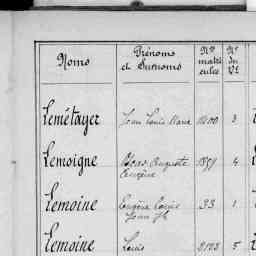 Noms Prénoms et Surnoms Nos matricules No du Vt
Lemétayer Jean Louis Marie 3
Lemoigne Auguste 1871 4
Eugène
Lemoine Eugène Louis 33 1
Jean
Lemoine Louis 2123 5